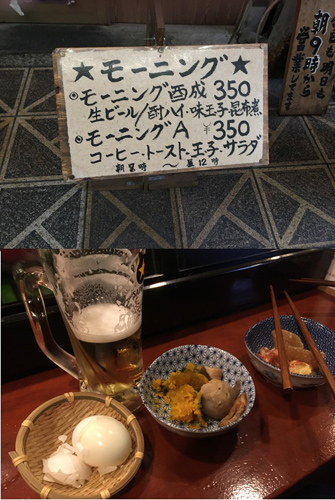 ★モーニング★
◉モーニング酉成 350
生ビール/酎ハイ・味玉子・昆布煮
◉モーニングA ¥350
コーヒー・トースト・玉子・サラダ
朝8時〜昼12時
朝9時から
営業してます